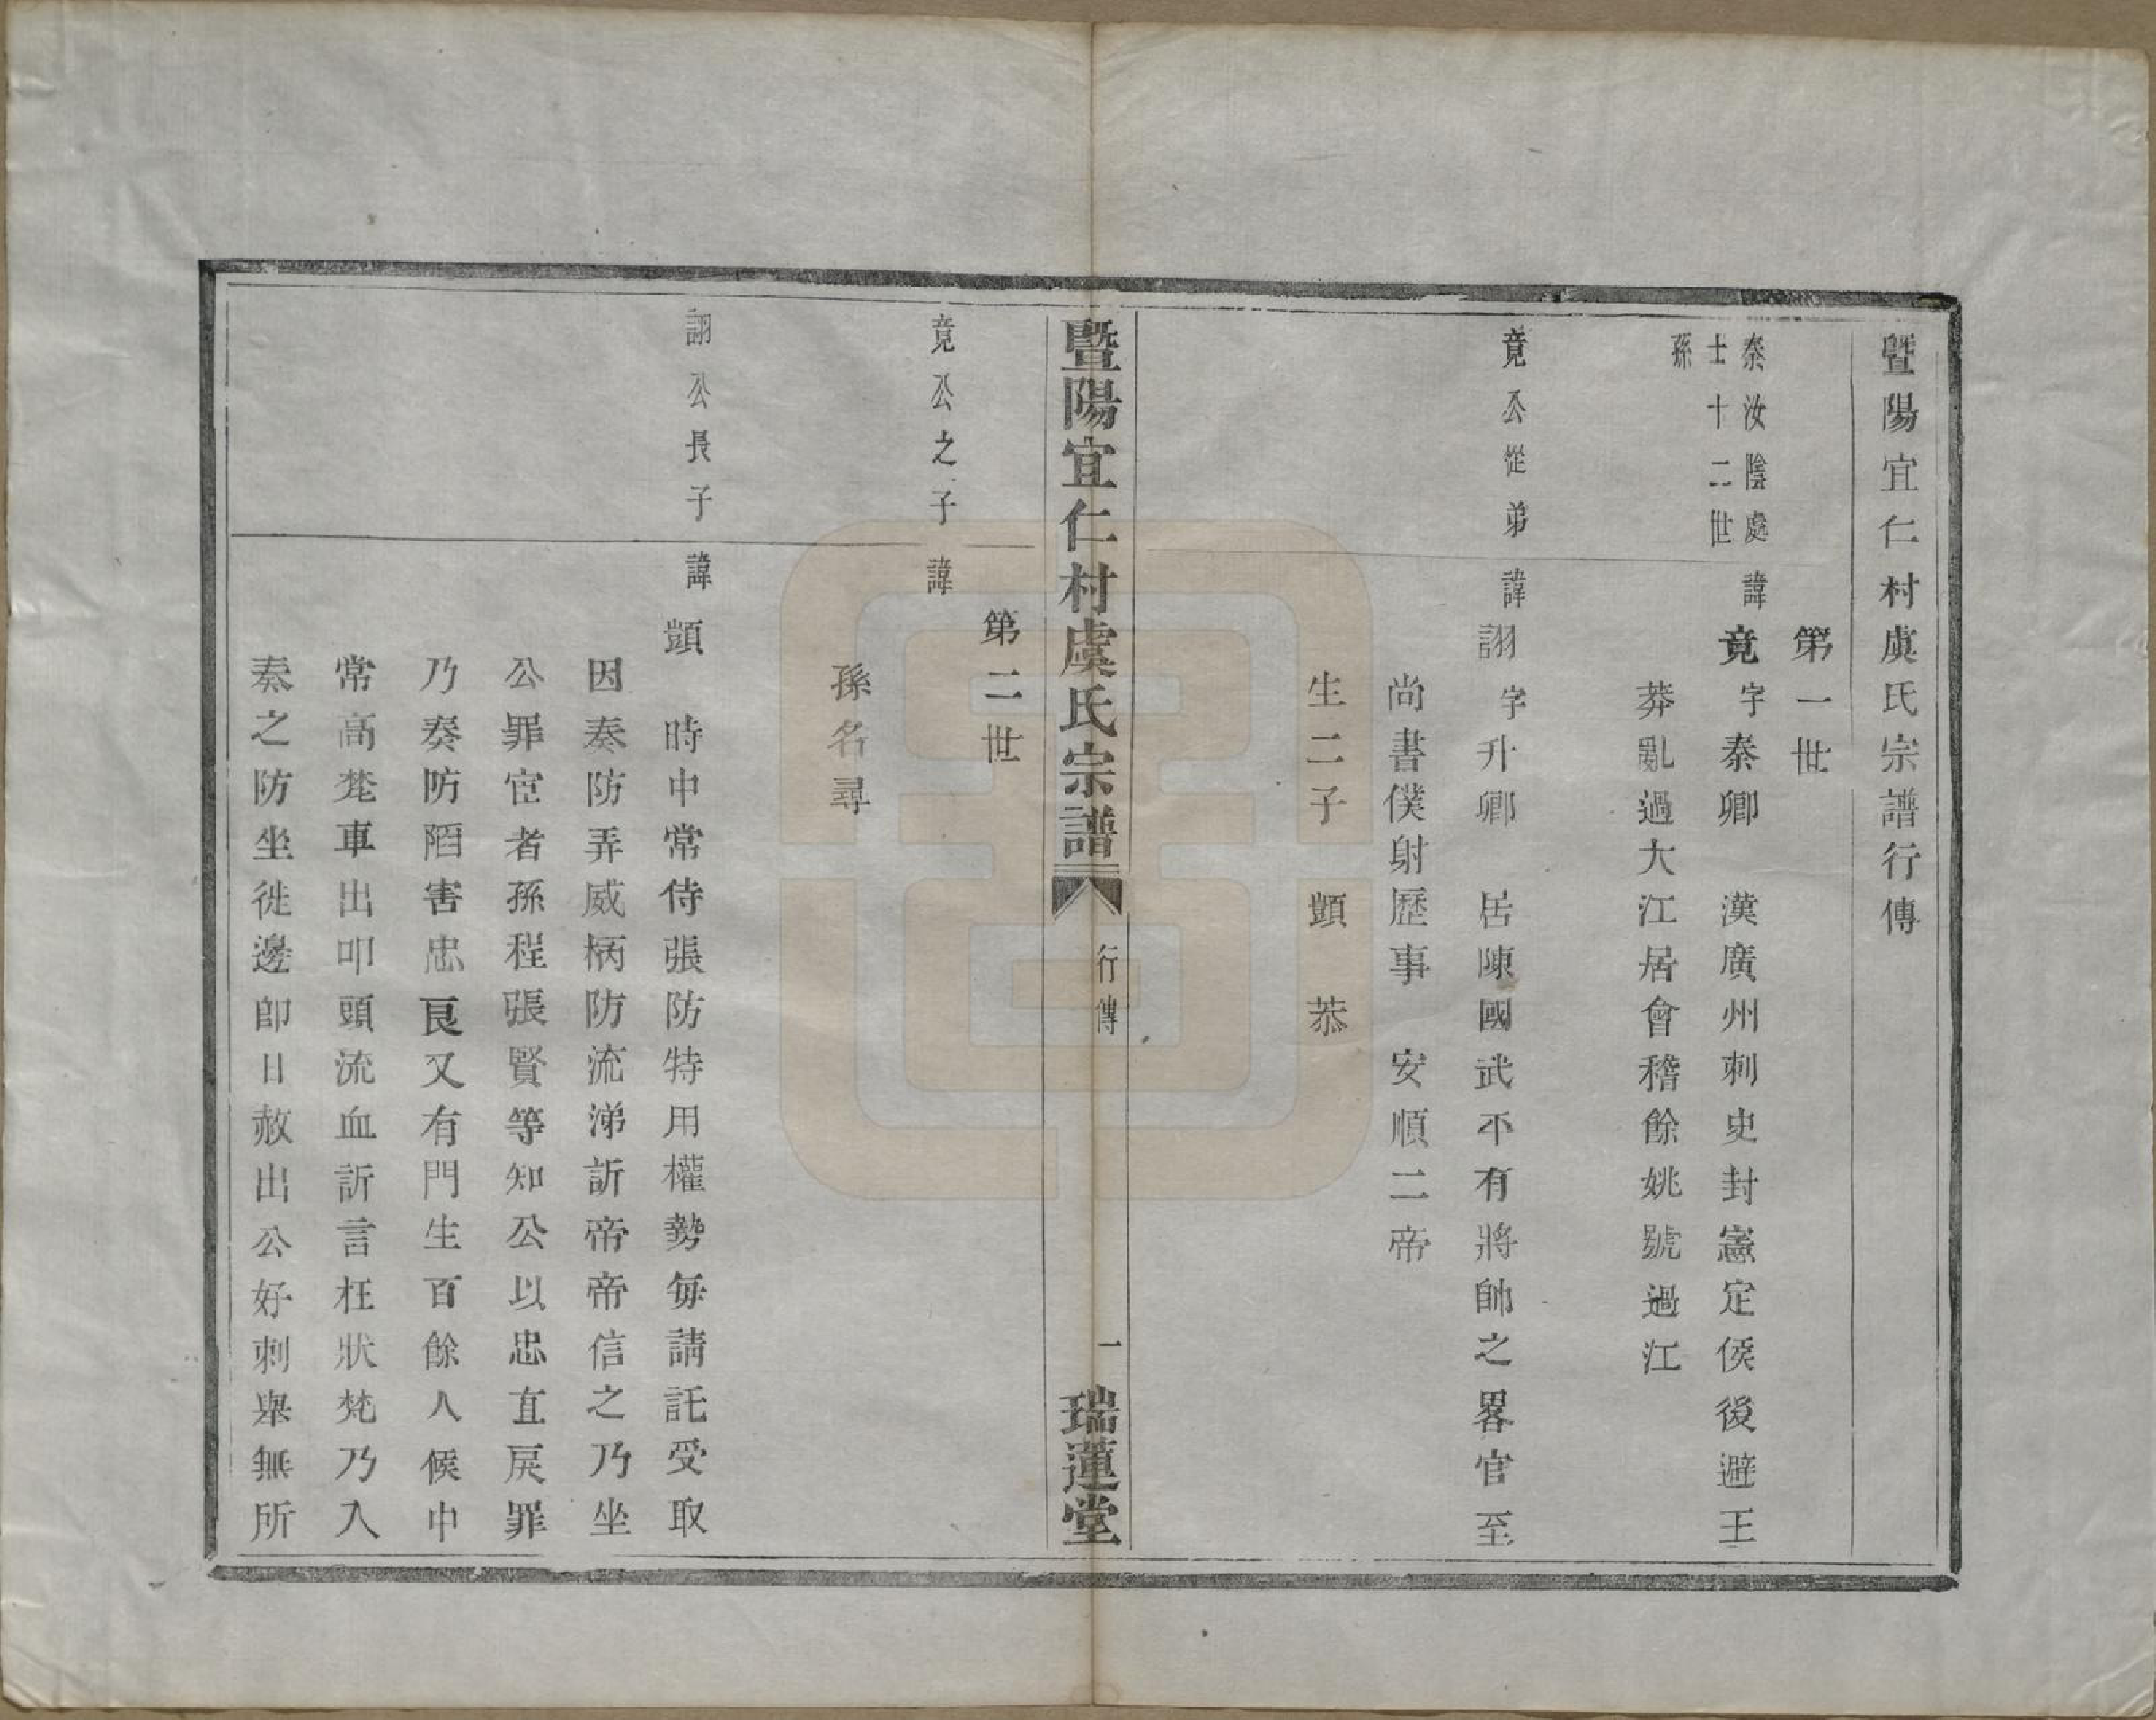 暨陽宜仁村虞氏宗譜行傳
第一世
秦汝陰處
士十二世
孫
諱竟字泰卿 漢廣州刺史封憲定侯後避王
莽亂過大江居會稽餘姚號過江
竟公從弟
諱詡字升卿 居陳國武不有將帥之畧官至
尚書僕射歷事 安順二帝
生二子 顗 恭
暨陽宜仁村虞氏宗譜 行傳 一 瑞蓮堂
第二世
竟公之子
諱
孫名尋
詡公長子
諱顗 時中常侍張防特用權勢每請託受取
因奏防弄威柄防流涕訴帝帝信之乃坐
公罪宦者孫程張賢等知公以忠直戾罪
乃奏防陷害忠良又有門生百餘人候中
常高梵車出叩頭流血訴言枉狀梵乃入
奏之防坐徙邊卽日赦出公好刺舉無所